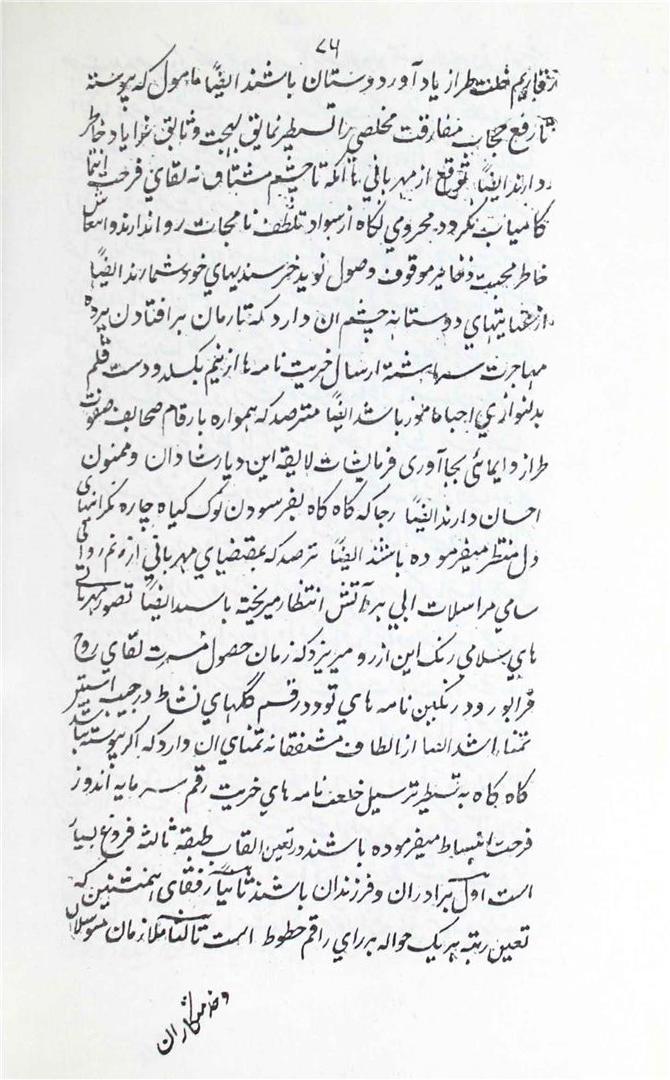 ۷۶
ازقلدیم خلت طراز یادآور دوستان باشند ایضاً مامول که پیوسته
تا رفع حجاب مفارقت مخلصی را بتسطیر نمایق بهجت وثایق غوایاد خاطر
دارند ایضاً متوقع از مهربانی تا آنکه تا چشم مشتاق نه لقای فرحت انتما
کامیاب نگردد محرومی نگاه از سواد تلطف نامجات روا ندارند و انتعاش
خاطر محبت ذخایر موقوف وصول نوید خرسندیهای خود شمارند ایضاً
از عنایتهای دوستانه چشم آن دارد که تا زمان بر افتادن پرده
مهاجرت سررشته ارسال خریت نامه ها از نیم نگسلد و دست قلم
بدلنوازی احبا مامور باشد ایضاً مترصد که همواره بارقام صحایف صفوت
طراز و ایمائی بجاآوری فرمایشات لایقه این دیار شادان و ممنون
احسان دارند ایضاً رجا که گاه گاه بفرسودن نوک گیاه چاره نگرانیهای
دل منتظر میفرموده باشند ایضاً مترصد که بمقتضای مهربانی از نم روانی
سامی مراسلات آبی بر آتش انتظار میریخته باشند ایضاً تصور مهربانی
های سامی رنگ این آرزو میریزد که زمان حصول مسرت لقای روح
فزا بورود رنگین نامه های تودد رقم گلهای نشاط در جیب آستین
تمنا باشد ایضاً از الطاف مشفقانه تمنای آن دارد که اگر پیوسته نباشد
گاه گاه به تسطیر ترسیل خلعت نامه های خریت رقم سرمایه اندوز
فرحت انبساط میفرموده باشند در تعین القاب طبقه ثالثه فروع بسیار
است اول برادران و فرزندان باشند ثانیاً رفقای همنشین که
تعین رتبه هر یک حواله بر رای راقم خطوط است ثالثاً ملازمان متوسلان
و خدمتگاران